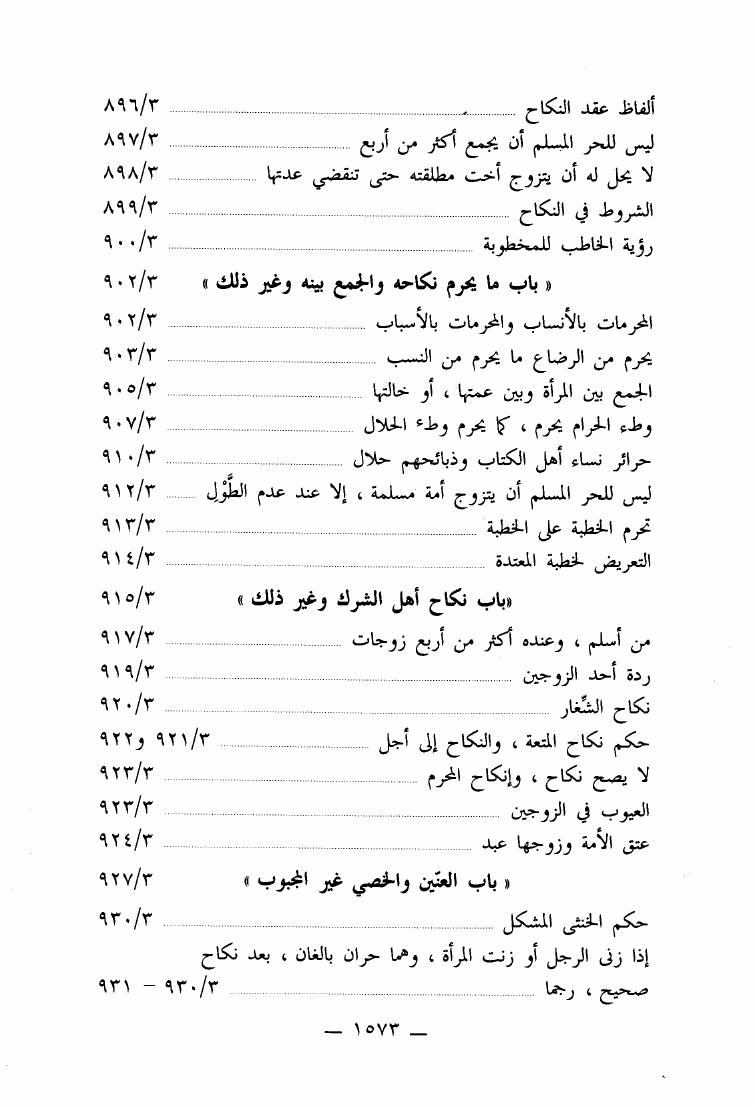 ألفاظ عقد النكاح ........ ٨٩٦/٣
ليس للحر المسلم أن يجمع أكثر من أربع ........ ٨٩٧/٣
لا يحل له أن يتزوج أخت مطلقته حتى تنقضي عدتها ........ ٨٩٨/٣
الشروط في النكاح ........ ٨٩٩/٣
رؤية الخاطب للمخطوبة ........ ٩٠٠/٣
« باب ما يحرم نكاحه والجمع بينه وغير ذلك » ٩٠٢/٣
المحرمات بالأنساب والمحرمات بالأسباب ........ ٩٠٢/٣
يحرم من الرضاع ما يحرم من النسب ........ ٩٠٣/٣
الجمع بين المرأة وبين عمتها ، أو خالتها ........ ٩٠٥/٣
وطء الحرام يحرم ، كما يحرم وطء الحلال ........ ٩٠٧/٣
حرائر نساء أهل الكتاب وذبائحهم حلال ........ ٩١٠/٣
ليس للحر المسلم أن يتزوج أمة مسلمة ، إلا عند عدم الطَّوْلِ ........ ٩١٢/٣
تحرم الخطبة على الخطبة ........ ٩١٣/٣
التعريض لخطبة المعتدة ........ ٩١٤/٣
«باب نكاح أهل الشرك وغير ذلك » ٩١٥/٣
من أسلم ، وعنده أكثر من أربع زوجات ........ ٩١٧/٣
ردة أحد الزوجين ........ ٩١٩/٣
نكاح الشِّغار ........ ٩٢٠/٣
حكم نكاح المتعة ، والنكاح إلى أجل ........ ٩٢١/٣ و٩٢٢
لا يصح نكاح ، وإنكاح المحرم ........ ٩٢٣/٣
العيوب في الزوجين ........ ٩٢٣/٣
عتق الأمة وزوجها عبد ........ ٩٢٤/٣
« باب العنّين والخصي غير المجبوب » ٩٢٧/٣
حكم الخنثى المشكل ........ ٩٣٠/٣
إذا زنى الرجل أو زنت المرأة ، وهما حران بالغان ، بعد نكاح
صحيح ، رجما ........ ٩٣٠/٣ – ٩٣١
— ١٥٧٣ —